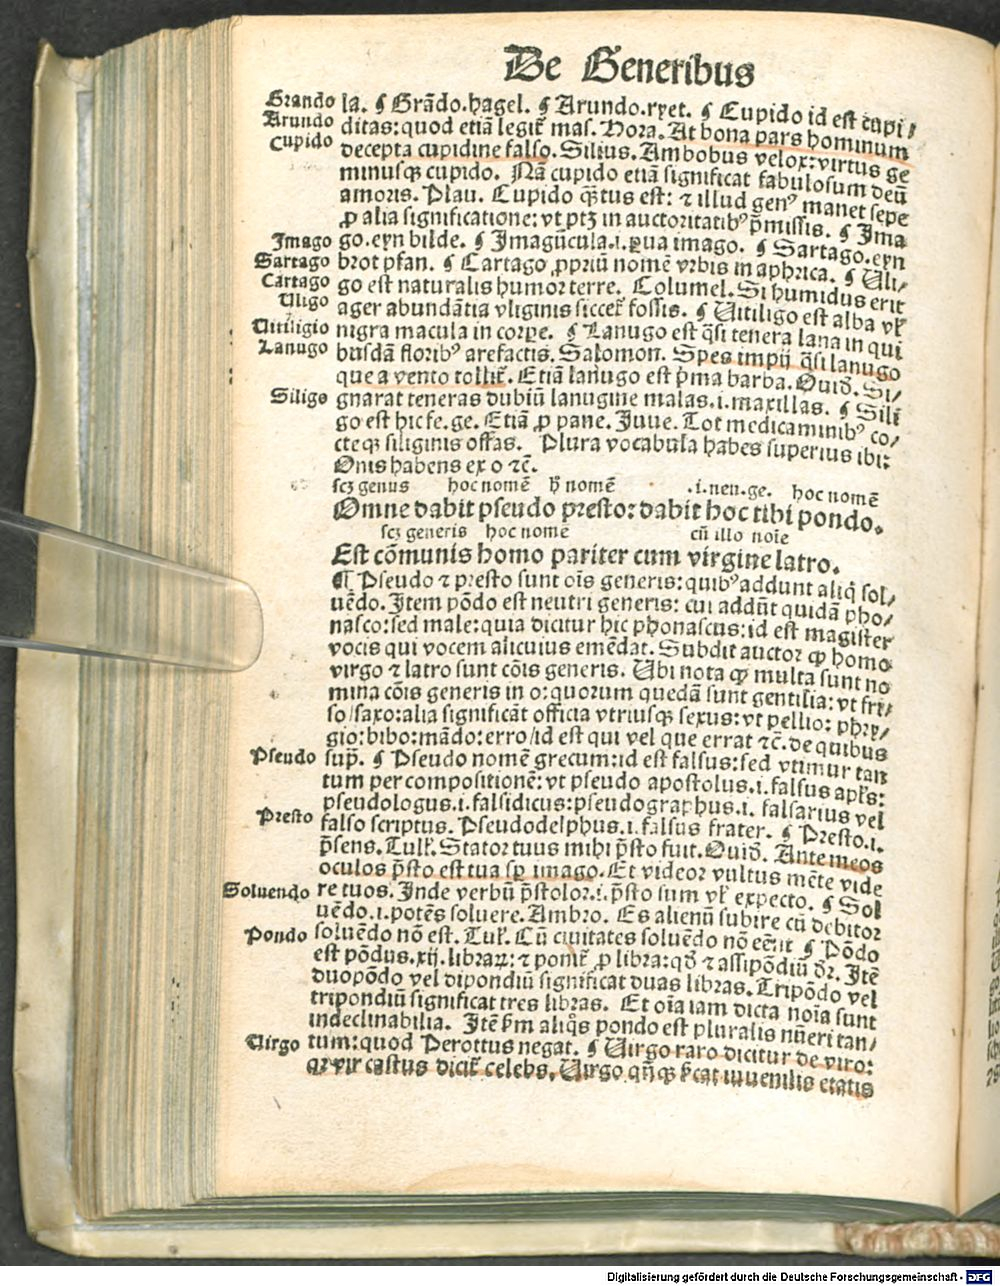 De Generibus
Grando la. ¶ Grãdo.hagel. ¶ Arundo.rʒet. ¶ Cupido id est cupi/
Arundo ditas:quod etiã legit᷑ mas. Hora. At bona pars hominum
Cupido decepta cupidine falso. Silius. Ambobus velox: virtus ge
minusqꝫ cupido. Nã cupido etiã significat fabulosum deũ
amoris. Plau. Cupido q̃tus est: ⁊ illud genꝰ manet sepe
ꝓ alia significatione: vt ptꝫ in auctoritatibꝰ p̃missis. ¶ Ima
Imago go.eyn bilde. ¶ Imagũcula.i.ꝑua imago. ¶ Sartago.eyn
Sartago brot pfan. ¶ Cartago ꝓpriũ nomẽ vrbis in aphrica. ¶ Uli/
Cartago go est naturalis humor terre. Columel. Si humidus erit
Uligo ager abundãtia vliginis siccet᷑ fossis. ¶ Uitiligo est alba vł
Uitiligio nigra macula in corꝑe. ¶ Lanugo est q̃si tenera lana in qui
Lanugo busdã floribꝰ arefactis. Salomon. Spes impij q̃si lanugo
que a vento tollit᷑. Etiã lanugo est p̃ma barba. Ouid̄. Si/
Siligo gnarat teneras dubiũ lanugine malas.i.maxillas. ¶ Sili
go est hic fe.ge. Etiã ꝓ pane. Juue. Tot medicaminibꝰ co/
cteqꝫ siliginis offas. Plura vocabula habes superius ibi:
Onis habens ex o ⁊c̃.
scꝫ genus hoc nomẽ hͦ nomẽ .i.neu.ge. hoc nomẽ
Omne dabit pseudo presto: dabit hoc tibi pondo.
scꝫ generis hoc nomẽ cũ illo noĩe
Est cõmunis homo pariter cum virgine latro.
¶ Pseudo ⁊ presto sunt oĩs generis: quibꝰ addunt aliq̃ sol/
uẽdo. Item põdo est neutri generis: cui addũt quidã pho/
nasco: sed male: quia dicitur hic phonascus: id est magister
vocis qui vocem alicuius emẽdat. Subdit auctor ꝙ homo
virgo ⁊ latro sunt cõis generis. Ubi nota ꝙ multa sunt no
mina cõis generis in o: quorum quedã sunt gentilia: vt fri/
so/saxo: alia significãt officia vtriusqꝫ sexus: vt pellio: phry/
gio: bibo: mãdo: erro/id est qui vel que errat ⁊c̃. de quibus
Pseudo sup̃. ¶ Pseudo nomẽ grecum: id est falsus: sed vtimur tan
tum per compositionẽ: vt pseudo apostolus.i.falsus apłs:
pseudologus.i.falsidicus: pseudographus.i. falsarius vel
Presto falso scriptus. Pseudodelphus.i.falsus frater. ¶ Presto.i.
p̃sens. Tulł. Stator tuus mihi p̃sto fuit. Ouid̄. Ante meos
oculos p̃sto est tua sꝑ imago. Et videor vultus mẽte vide
Soluendo re tuos. Inde verbũ p̃stolor.i.p̃sto sum vł expecto. ¶ Sol
uẽdo.i.potẽs soluere. Ambro. Es alienũ subire cũ debitor
Pondo soluẽdo nõ est. Tuł. Cũ ciuitates soluẽdo nõ eẽnt ¶ Põdo
est põdus.xij.libraꝝ: ⁊ ponit᷑ ꝓ libra: qd̃ ⁊ assipõdiũ dr̃. Itẽ
duopõdo vel dipondiũ significat duas libras. Tripõdo vel
tripondiũ significat tres libras. Et oĩa iam dicta noĩa sunt
indeclinabilia. Itẽ s̃m aliq̃s pondo est pluralis nũeri tan/
Uirgo tum: quod Perottus negat. ¶ Uirgo raro dicitur de viro:
qꝛ vir castus dicit᷑ celebs. Uirgo qñqꝫ s̃cat iuuenilis etatis
Digitalisierung gefördert durch die Deutsche Forschungsgemeinschaft - DFG